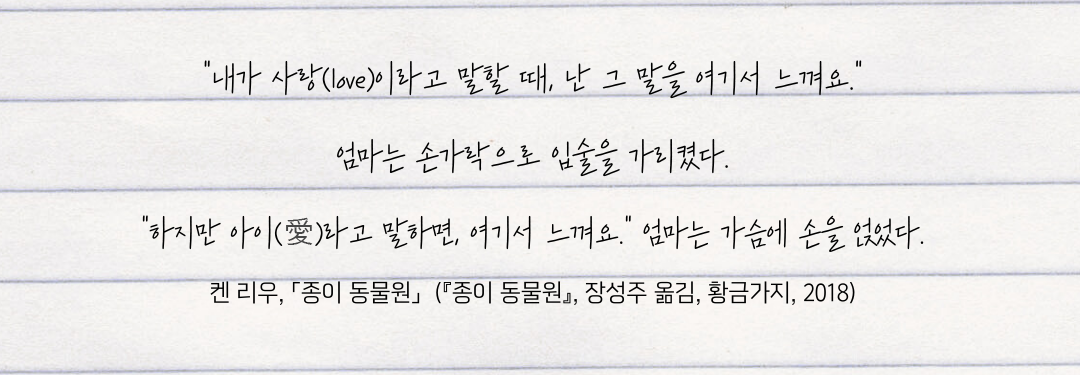 "내가 사랑(love)이라고 말할 때, 난 그 말을 여기서 느껴요."
엄마는 손가락으로 입술을 가리켰다.
"하지만 아이(愛)라고 말하면, 여기서 느껴요." 엄마는 가슴에 손을 얹었다.
켄 리우, 「종이 동물원」 (『종이 동물원』, 장성주 옮김, 황금가지, 2018)